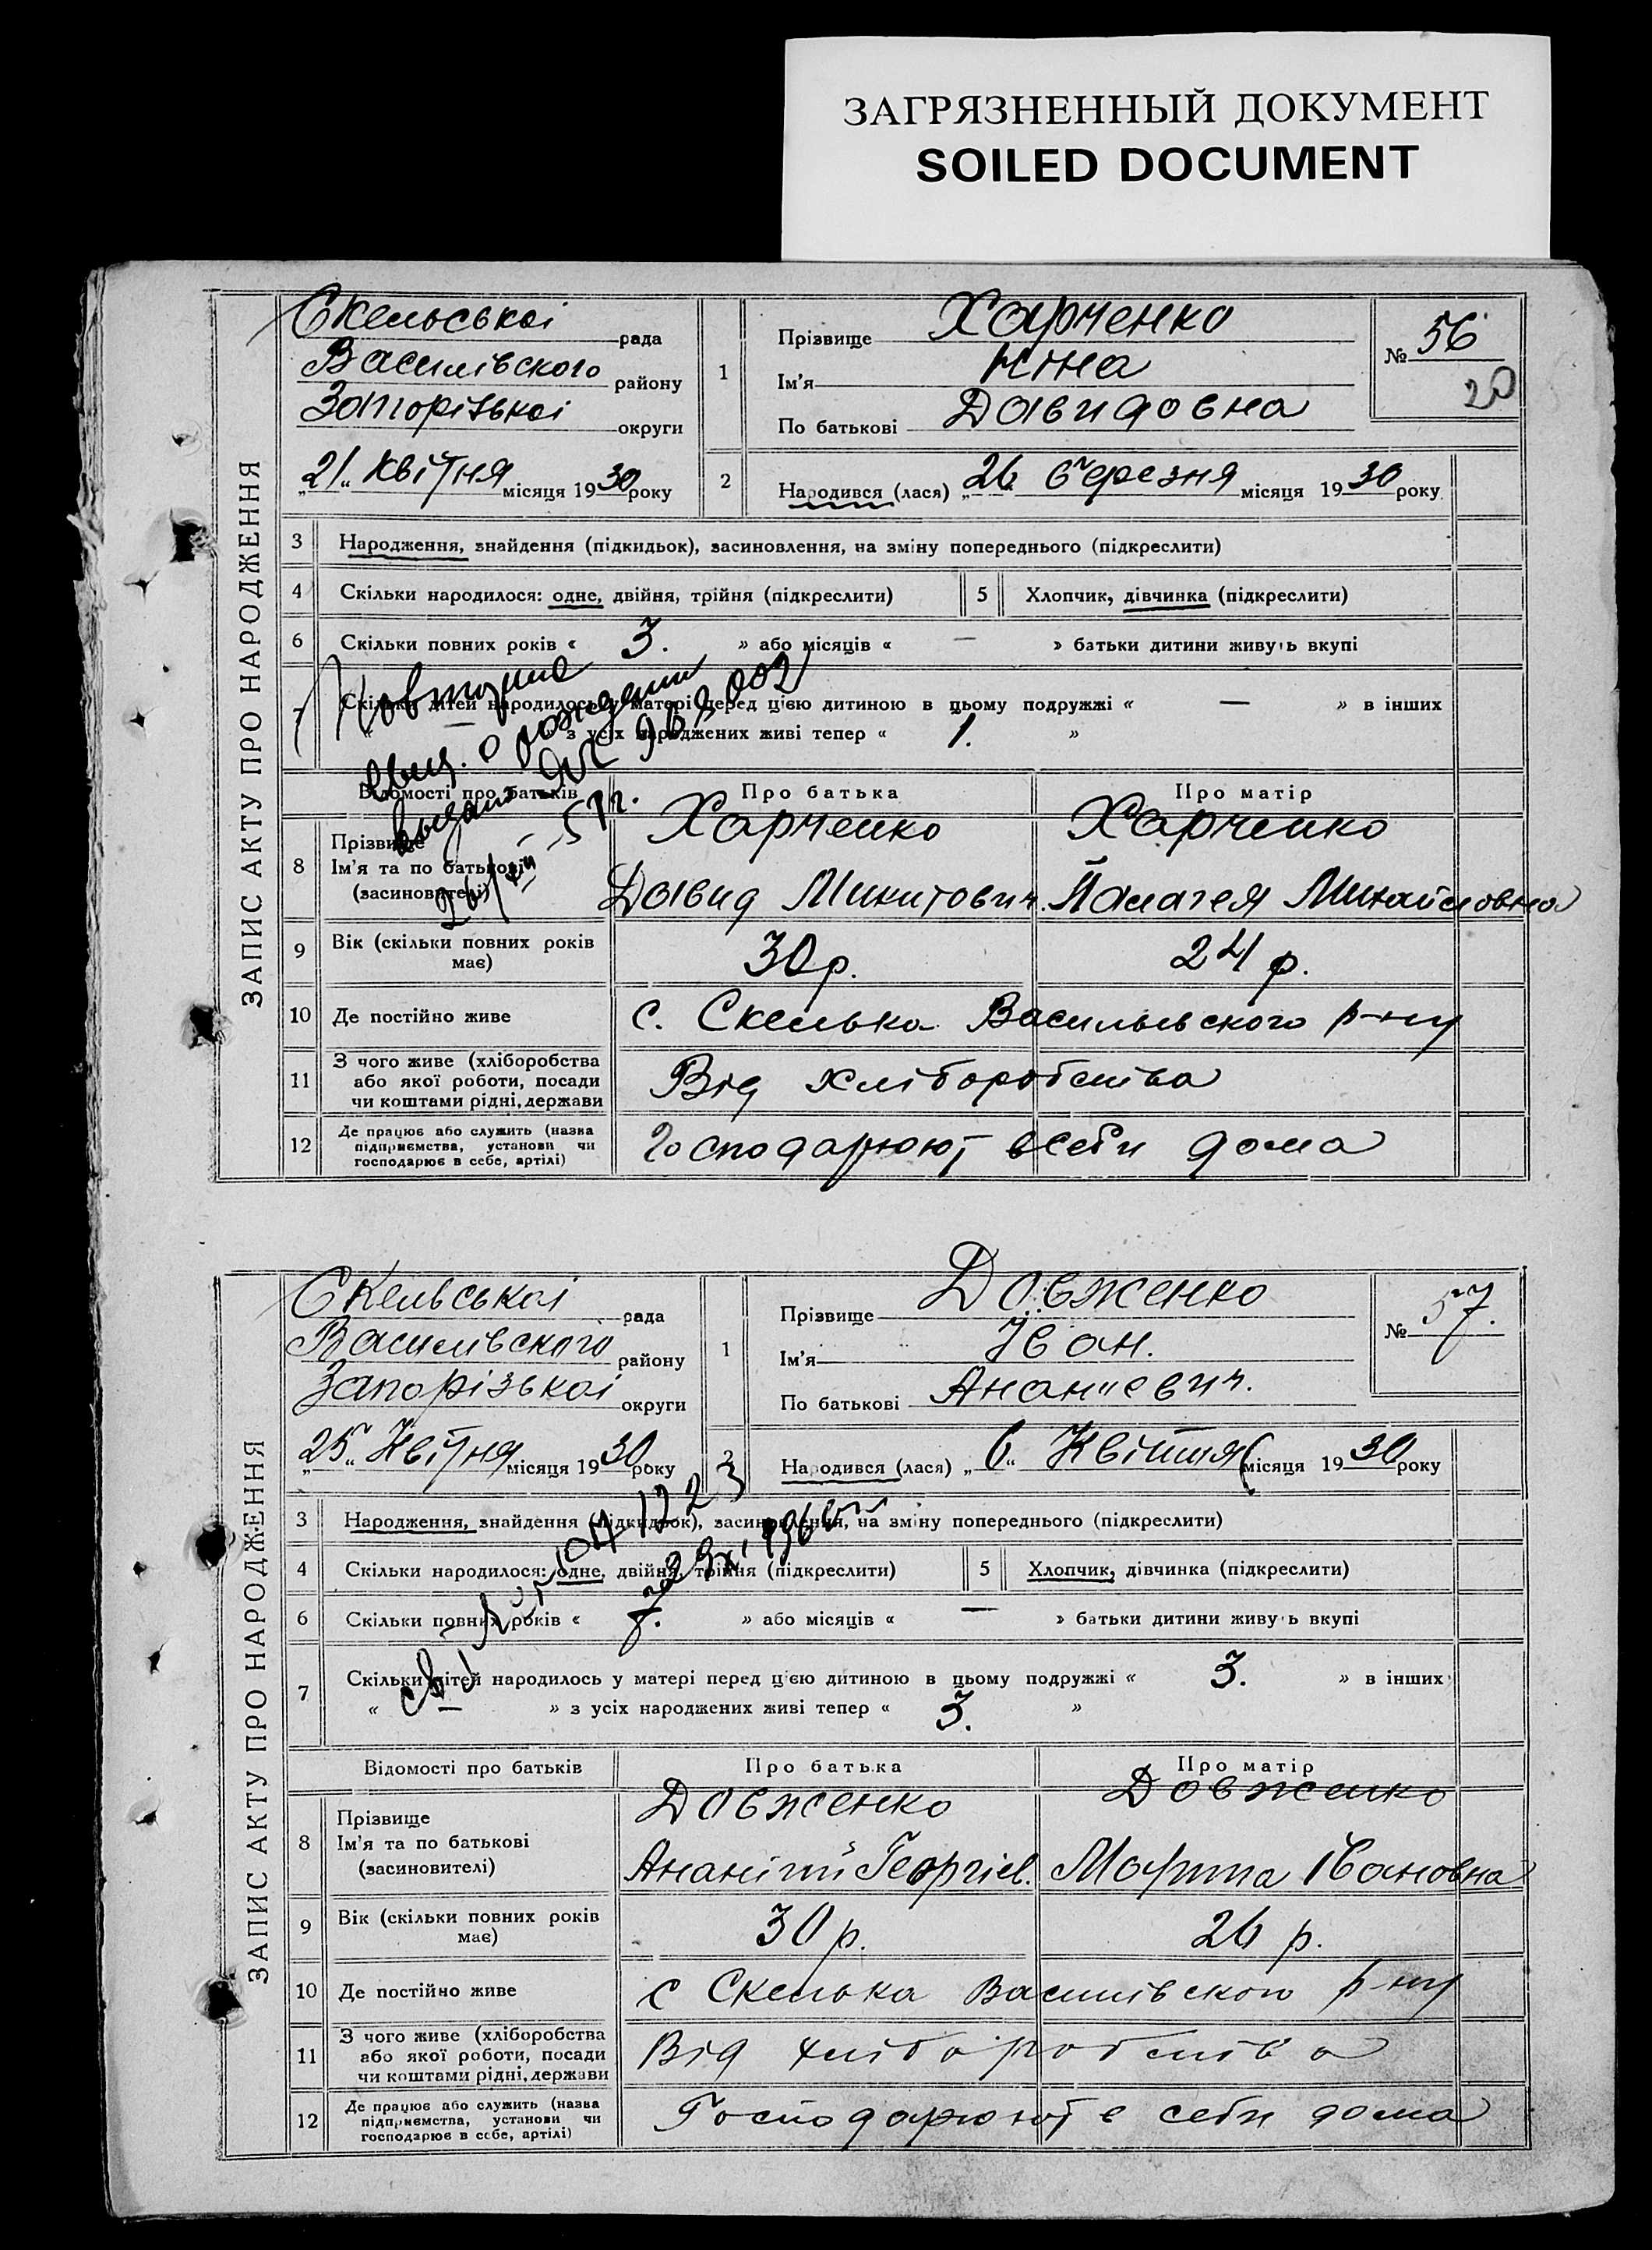 ЗАГРЯЗНЕННЫЙ ДОКУМЕНТ
SOILED DOCUMENT
ЗАПИС АКТУ ПРО НАРОДЖЕННЯ
Скельської рада
Василівского району
Запорізької округи
„21“ Квітня місяця 1930 року
1 Прізвище Харченко
Ім'я Ніна
По батькові Давидовна
№ 56
20
2 Народився (лася) „26“ березня місяця 1930 року
3 Народження, знайдення (підкидьок), засиновлення, на зміну попереднього (підкреслити)
4 Скільки народилося: одне, двійня, трійня (підкреслити) 5 Хлопчик, дівчинка (підкреслити)
6 Скільки повних років « 3. » або місяців « — » батьки дитини живуть вкупі
7 Скільки дітей народилось у матері перед цією дитиною в цьому подружжі « — » в інших
« — » з усіх народжених живі тепер « 1. »
Повторне
свид. о рождении
выдано
Відомості про батьків Про батька Про матір
8 Прізвище Харченко Харченко
Ім'я та по батькові Давид Микитович. Палагея Михайловна
(засиновителі)
9 Вік (скільки повних років має) 30 р. 24 р.
10 Де постійно живе с. Скелька Васильевского р-ну
11 З чого живе (хліборобства або якої роботи, посади чи коштами рідні, держави Від хліборобства
12 Де працює або служить (назва підприємства, установи чи господарює в себе, артілі) Господарюют всеби дома
ЗАПИС АКТУ ПРО НАРОДЖЕННЯ
Скельської рада
Василівського району
Запорізької округи
„25“ Квітня місяця 1930 року
1 Прізвище Довженко
Ім'я Іван.
По батькові Ананиевич.
№ 57.
2 Народився (лася) „6“ Квітня місяця 1930 року
3 Народження, знайдення (підкидьок), засиновлення, на зміну попереднього (підкреслити)
4 Скільки народилося: одне, двійня, трійня (підкреслити) 5 Хлопчик, дівчинка (підкреслити)
6 Скільки повних років « » або місяців « — » батьки дитини живуть вкупі
7 Скільки дітей народилось у матері перед цією дитиною в цьому подружжі « 3. » в інших
« — » з усіх народжених живі тепер « 3. »
Відомості про батьків Про батька Про матір
8 Прізвище Довженко Довженко
Ім'я та по батькові Ананій Георгіев. Марта Івановна
(засиновителі)
9 Вік (скільки повних років має) 30 р. 26 р.
10 Де постійно живе с Скелька Василівского р-ну
11 З чого живе (хліборобства або якої роботи, посади чи коштами рідні, держави Від хліборобства
12 Де працює або служить (назва підприємства, установи чи господарює в себе, артілі) Господарюют в себи дома